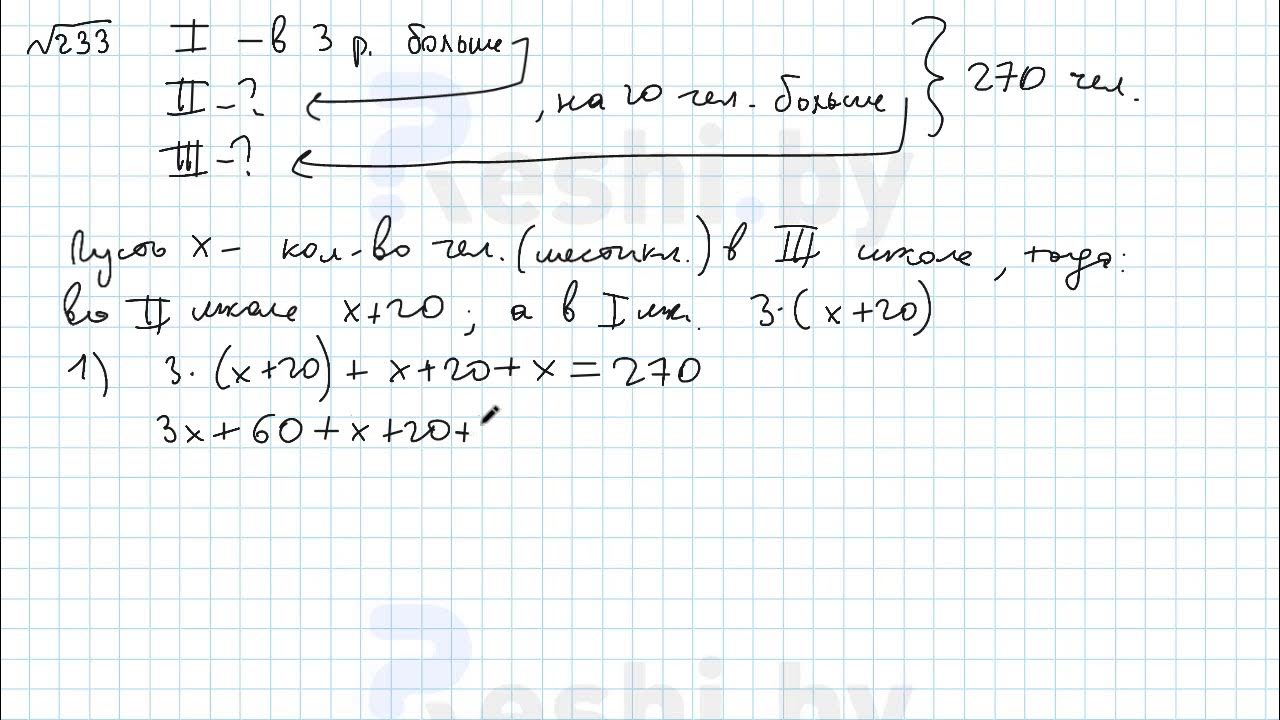 √233 I – в 3 р. больше
II – ? , на 20 чел. больше } 270 чел.
III – ?
Пусть x – кол-во чел. (шестикл.) в III школе, тогда:
во II школе x+20; а в I шк. 3·(x+20)
1) 3·(x+20) + x+20+x = 270
3x + 60 + x + 20 +
?eshi.by
?eshi.by